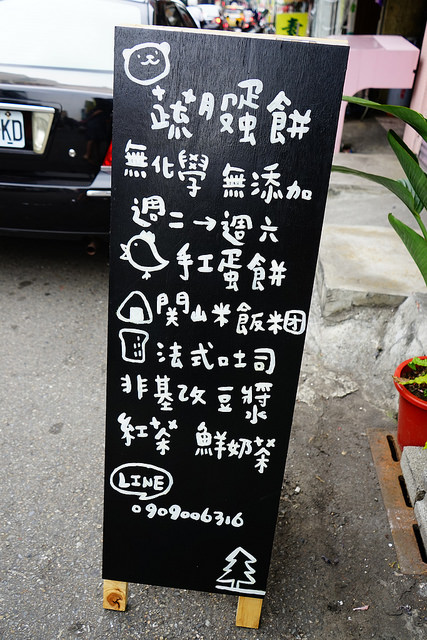 蔬月蛋餅
無化學 無添加
週二→週六
手工蛋餅
関山米飯糰
法式吐司
非基改豆漿
紅茶 鮮奶茶
LINE
0909006316
KD